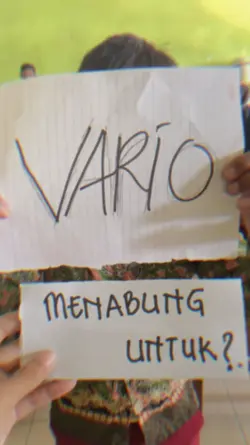 VARIO
MENABUNG
UNTUK?